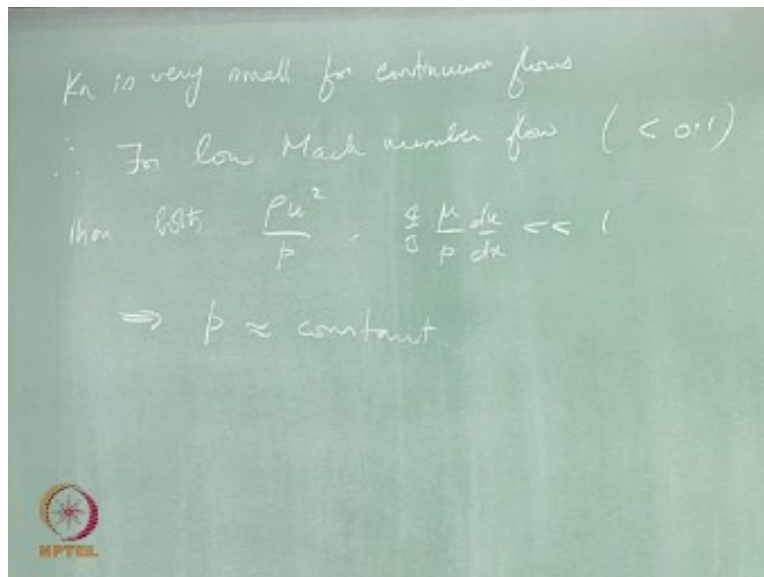 Kn is very small for continuum flows
∴ For low Mach number flow ( < 0.1)
then both ρu²/p , 4/3 μ/p du/dx << 1
⇒ p ≈ constant.
NPTEL